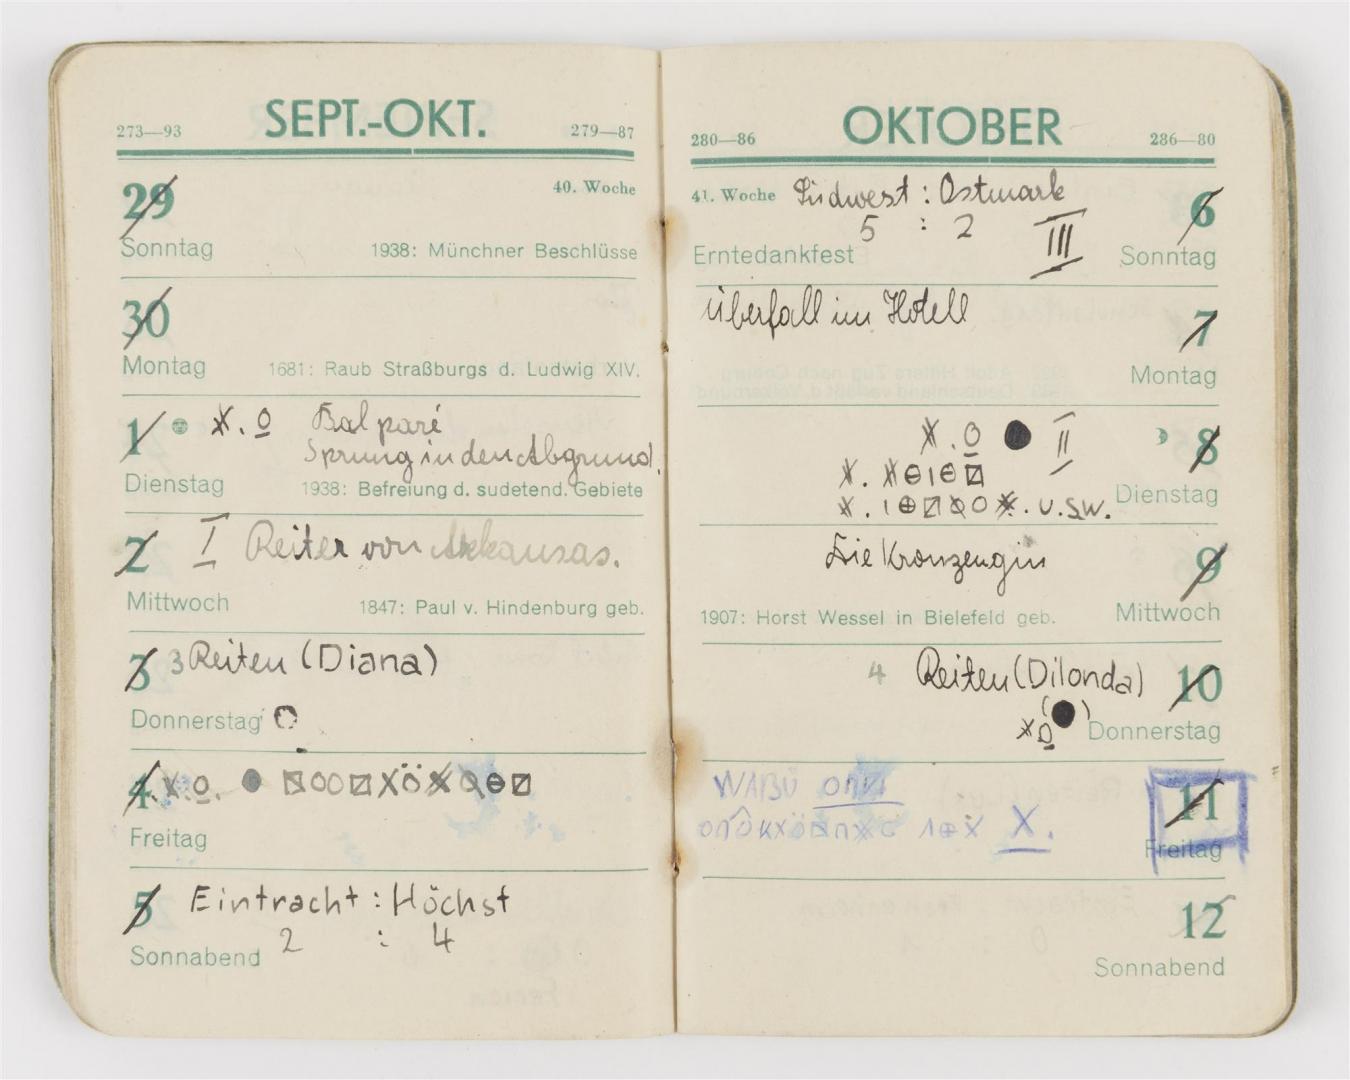 273—93 SEPT.-OKT. 279—87
29 40. Woche
Sonntag 1938: Münchner Beschlüsse
30
Montag 1681: Raub Straßburgs d. Ludwig XIV.
1 X. O Bal paré
Sprung in den Abgrund.
Dienstag 1938: Befreiung d. sudetend. Gebiete
2 I Reiter von Arkansas.
Mittwoch 1847: Paul v. Hindenburg geb.
3 3 Reiten (Diana)
Donnerstag
4 X. O.
Freitag
5 Eintracht : Höchst
2 : 4
Sonnabend
280—86 OKTOBER 286—80
41. Woche Südwest : Ostmark 6
5 : 2 III
Erntedankfest Sonntag
Überfall im Hotell 7
Montag
X. O ● II 8
u.s.w. Dienstag
Die Kronzeugin 9
1907: Horst Wessel in Bielefeld geb. Mittwoch
4 Reiten (Dilonda) 10
Donnerstag
WABÜ 11
X.
Freitag
12
Sonnabend